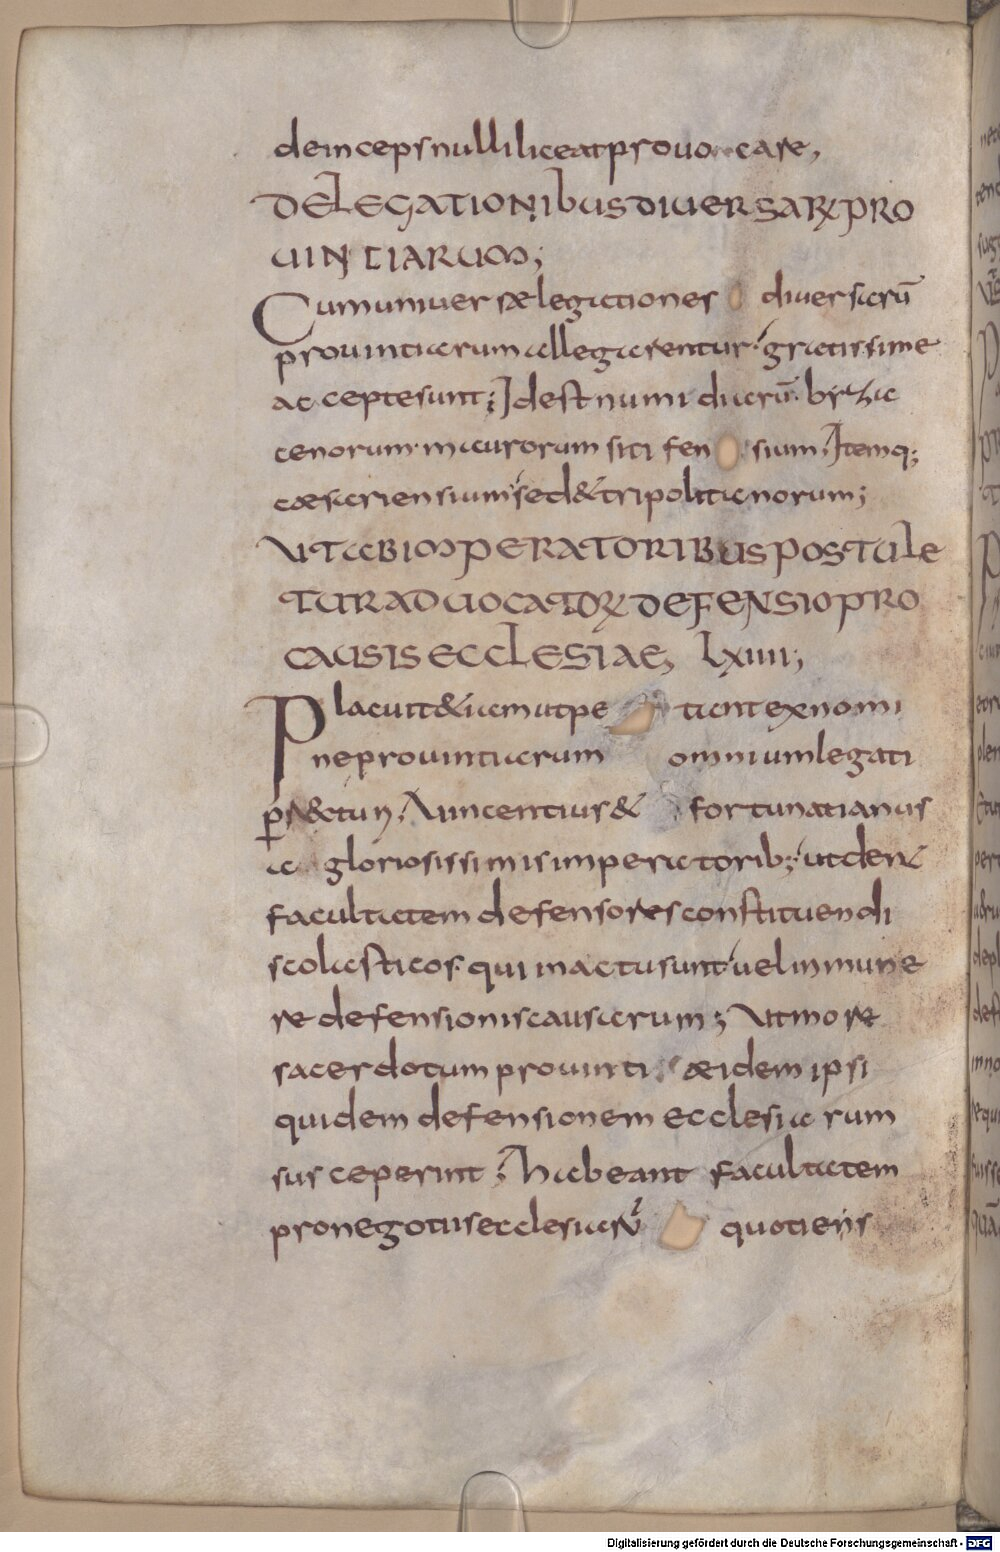 deinceps nulli liceat prouocare,
DE LEGATIONIBUS DIUERSARꝜ PRO
UINTIARUM;
Cum uniuersæ legationes diuersarū
prouintiarum allegarentur. gratissime
acceptesunt; Idest numidiarū. byrza
cenorum. maurorum sitifensium. Itemq;
cæsariensium sed & tripolitanorum;
UT AB IMPERATORIBUS POSTULE
TUR ADUOCATOꝜ DEFENSIO PRO
CAUSIS ECCLESIAE, LXIIII;
Placuit &iam ut petiant ex nomi
ne prouintiarum omnium legati
p̱ Uincentius & fortunatianus
a gloriosissimis imperatorib; ut den&
facultatem defensores constituendi
scolasticos. qui in actu sunt uel in mune
re defensionis causarum; Ut more
sacerdotum prouintiæ idem ipsi
quidem defensionem ecclesiarum
susceperint; habeant facultatem
pro negotiis ecclesiarū quotiens
Digitalisierung gefördert durch die Deutsche Forschungsgemeinschaft - DFG